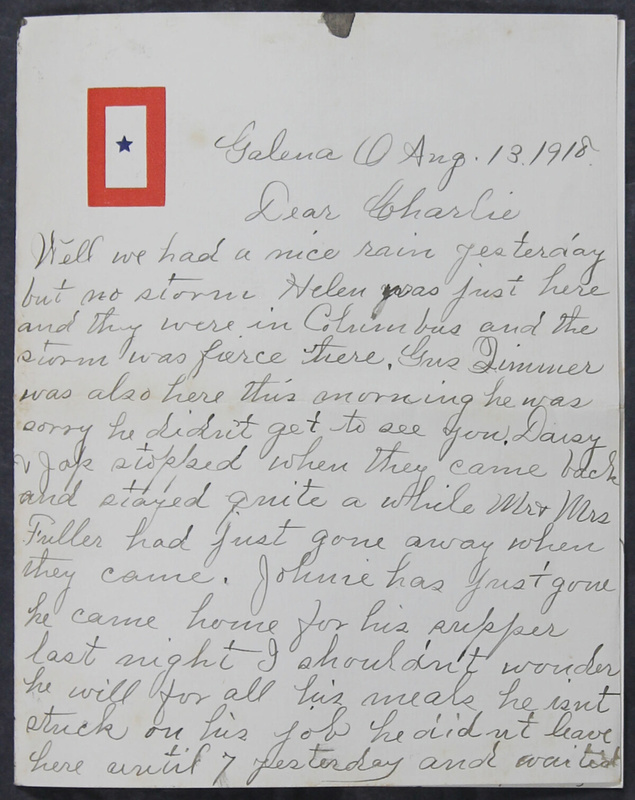 Galena O Aug. 13. 1918.
Dear Charlie
Well we had a nice rain yesterday
but no storm Helen was just here
and they were in Columbus and the
storm was fierce there. Gus Zimmer
was also here this morning he was
sorry he didn't get to see you. Daisy
& Jak stopped when they came back
and stayed quite a while Mr & Mrs
Fuller had just gone away when
they came. Johnie has just gone
he came home for his supper
last night I shouldn't wonder
he will for all his meals he isnt
stuck on his job he didn't leave
here until 7 yesterday and waited